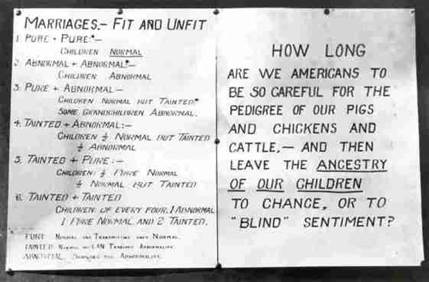 MARRIAGES.- FIT AND UNFIT
1. PURE + PURE:-
CHILDREN NORMAL
2. ABNORMAL + ABNORMAL:-
CHILDREN ABNORMAL
3. PURE + ABNORMAL:-
CHILDREN NORMAL BUT TAINTED.
SOME GRANDCHILDREN ABNORMAL.
4. TAINTED + ABNORMAL:-
CHILDREN ½ NORMAL BUT TAINTED
½ ABNORMAL
5. TAINTED + PURE:-
CHILDREN: ½ PURE NORMAL
½ NORMAL BUT TAINTED
6. TAINTED + TAINTED
CHILDREN: OF EVERY FOUR, 1 ABNORMAL
1 PURE NORMAL AND 2 TAINTED.
PURE: NORMAL AND TRANSMITTING ONLY NORMAL.
TAINTED: NORMAL CAN TRANSMIT ABNORMALITY.
ABNORMAL: ABNORMALITY.
HOW LONG
ARE WE AMERICANS TO
BE SO CAREFUL FOR THE
PEDIGREE OF OUR PIGS
AND CHICKENS AND
CATTLE,- AND THEN
LEAVE THE ANCESTRY
OF OUR CHILDREN
TO CHANCE, OR TO
"BLIND" SENTIMENT?